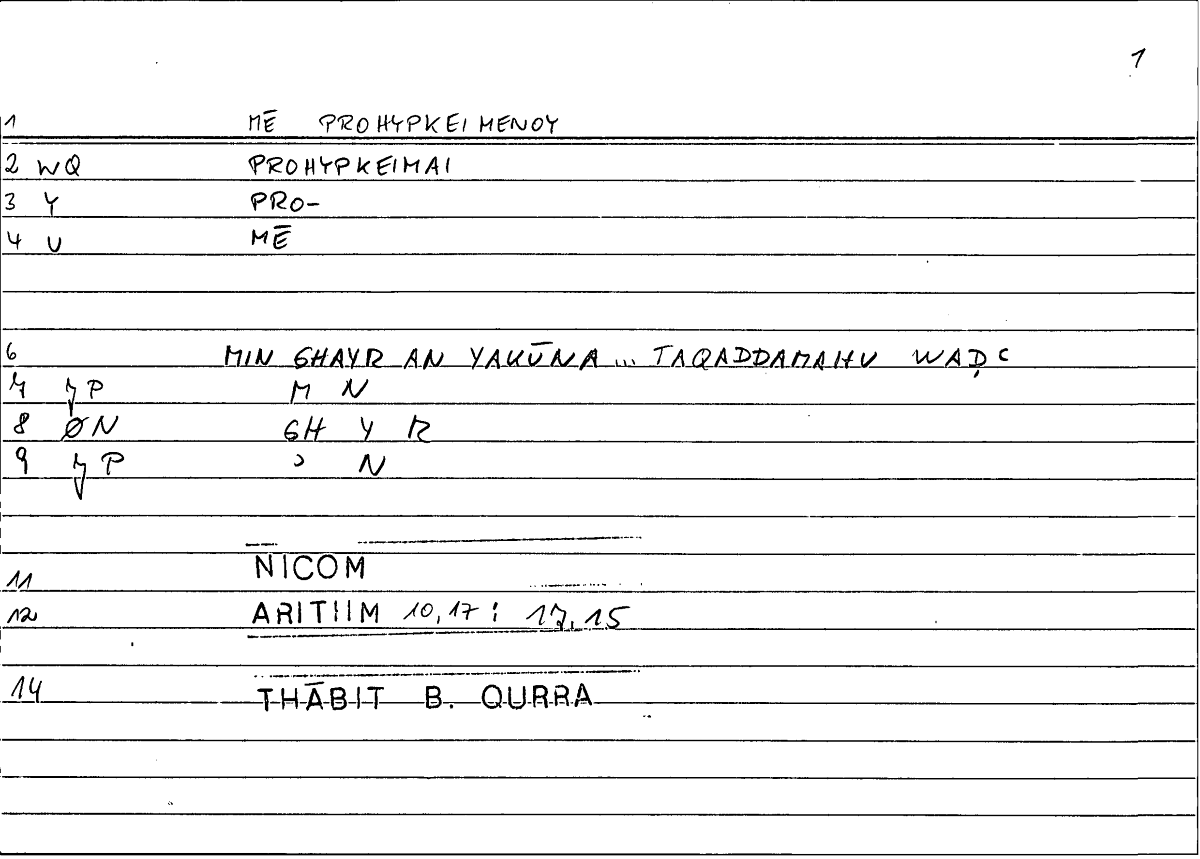 1
1 MĒ PROHYPKEIMENOY
2 WQ PROHYPKEIMAI
3 Y PRO-
4 U MĒ
6 MIN GHAYR AN YAKŪNA ... TAQADDAMAHU WAḌʿ
7 P M N
8 ØN GH Y R
9 P ʾ N
11 NICOM
12 ARITHM 10,17 : 17,15
14 THĀBIT B. QURRA